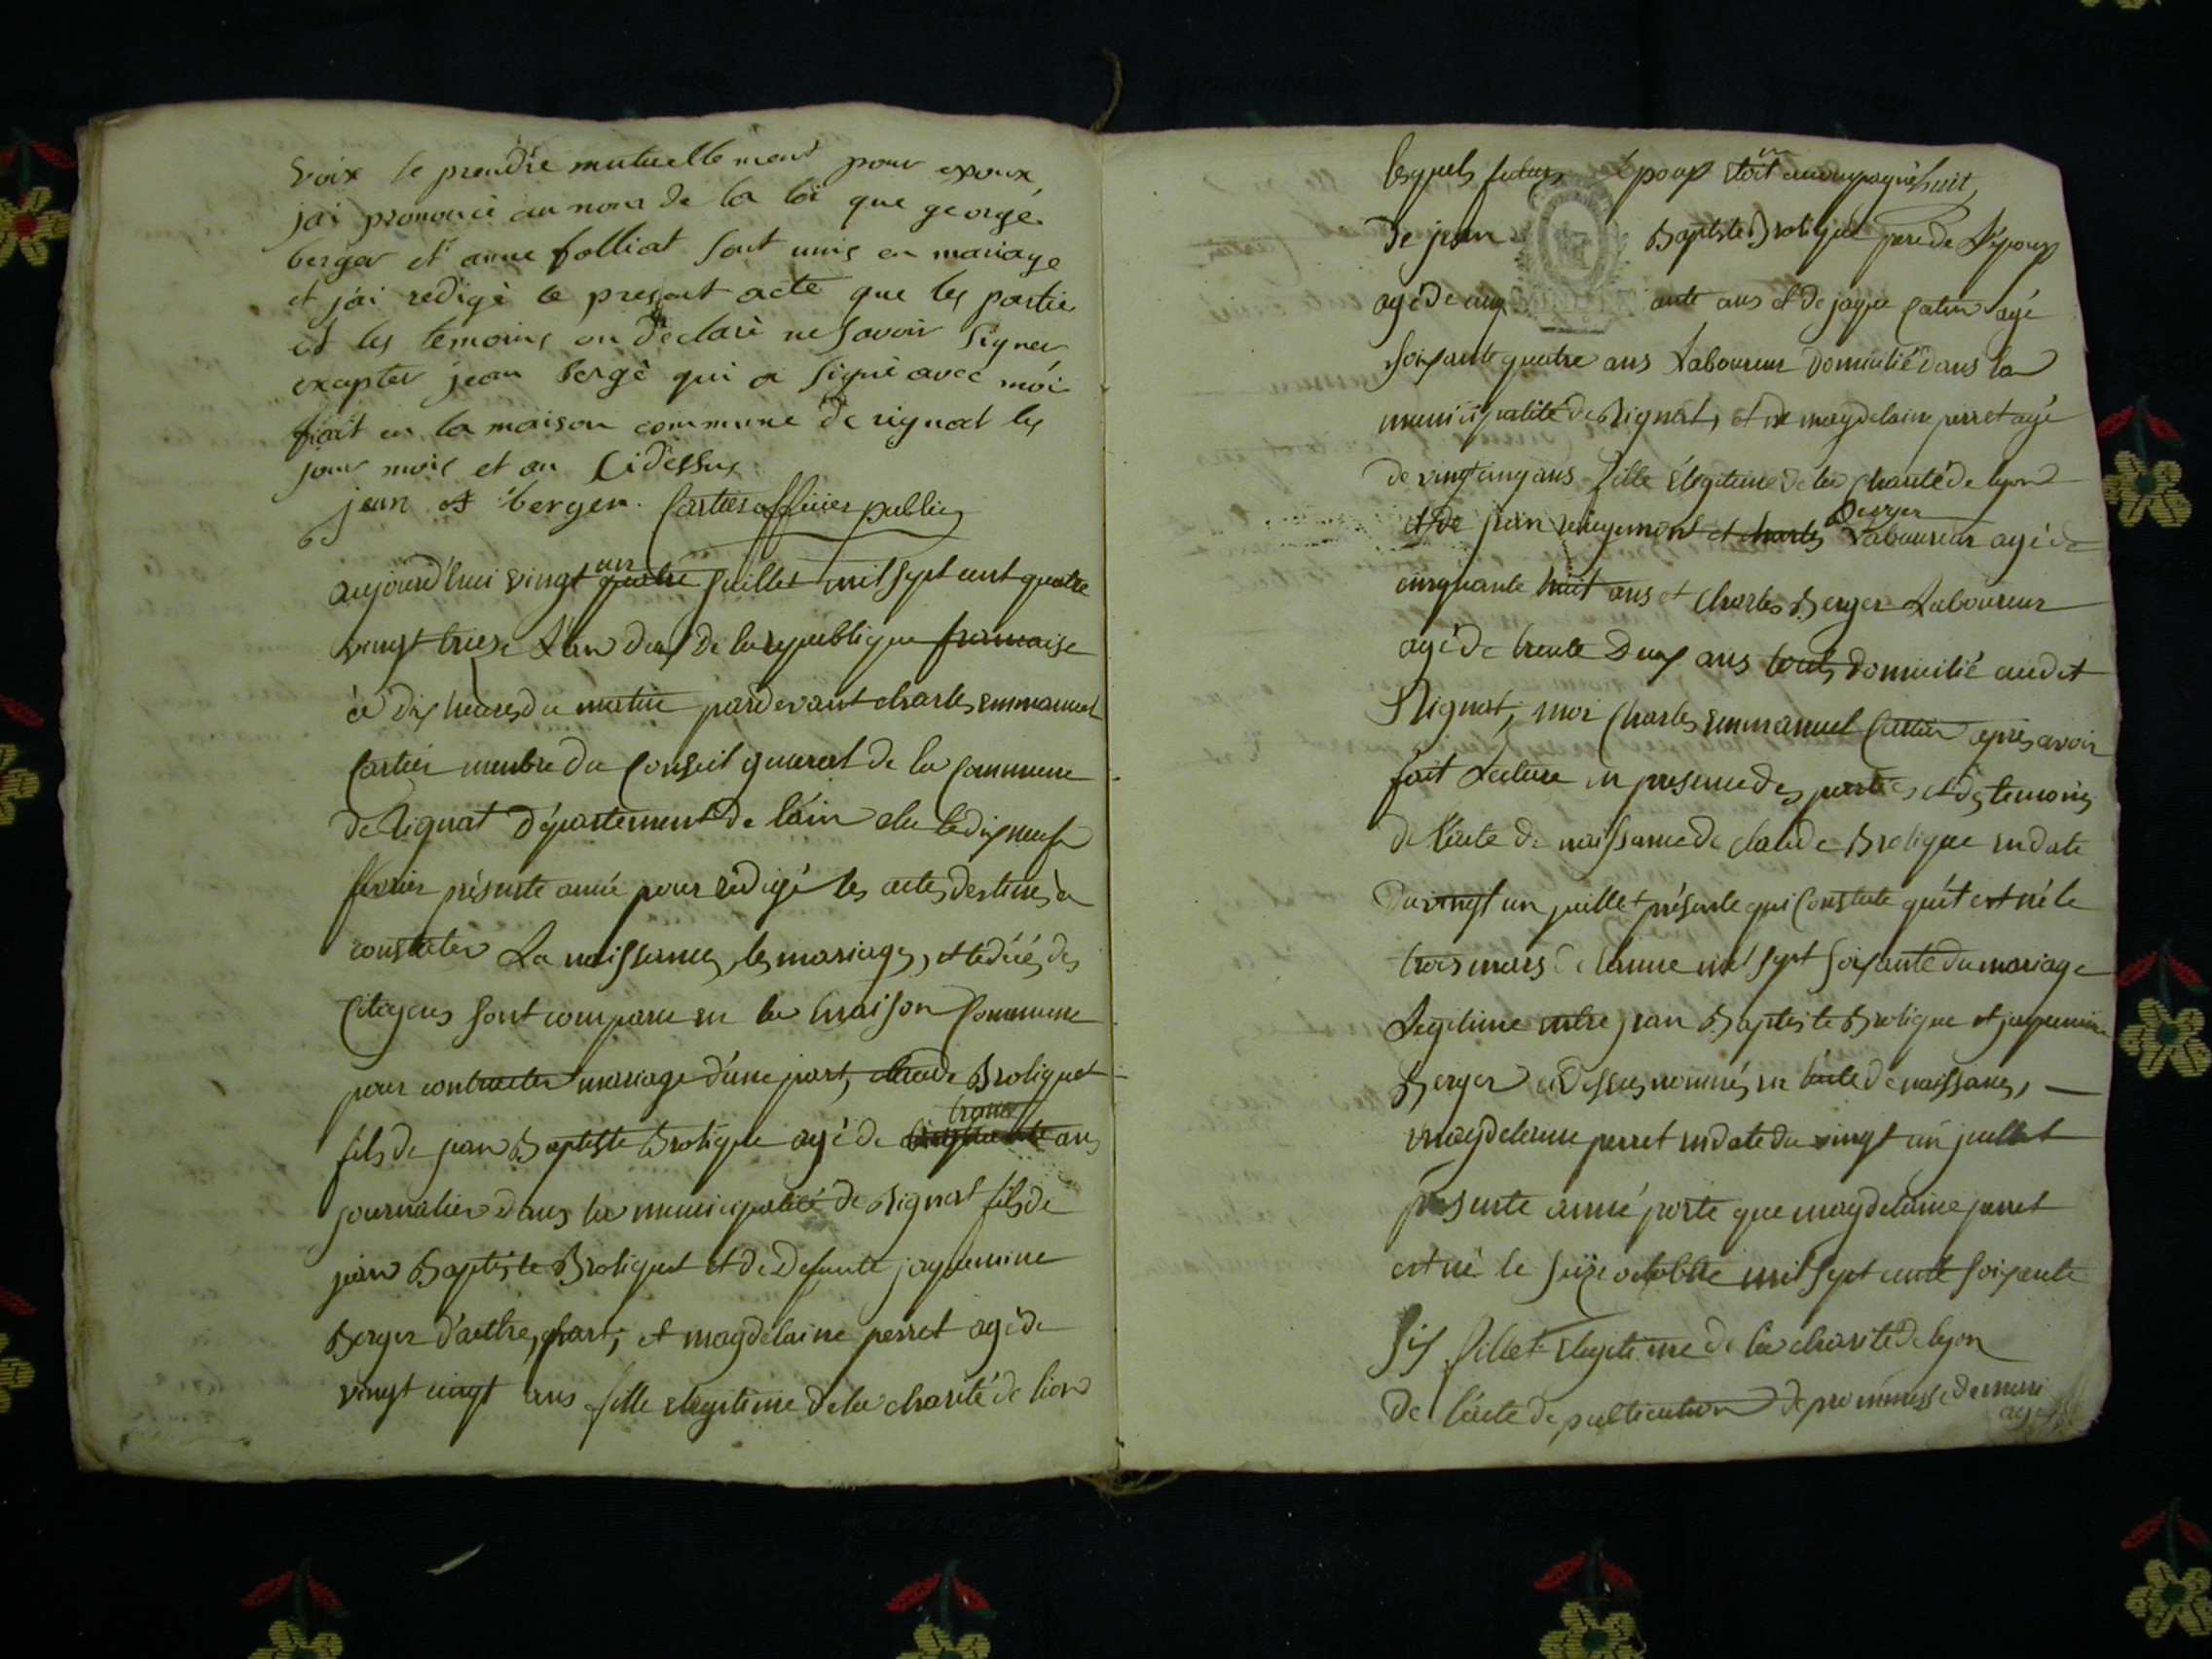 voix se prendre mutuellement pour epoux
jai prononcé au nom de la loi que george
berger et anne folliat sont unis en mariage
et j'ai redigé le present acte que les partie
et les temoins on déclaré ne savoir signer
excepter jean bergé qui a signé avec moi
fiait en la maison commune de rignat les
jour mois et an Cidessus
jean berger. Cartier officier public
aujourd'hui vingt un quatre juillet mil sept cent quatre
vingt treize L'an deux de la republique francaise
à dix heures du matin pardevant charles emmanuel
Cartier membre du Conseil general de la Commune
de Rignat département de l'ain elu le dix neuf
fevrier présente anné pour rédigé les actes destinés à
constater La naissances, les mariages, et le décés des
Citoyens sont comparu en la maison Commune
pour contracter mariage d'une part, claude Broliquet
fils de jean Baptiste Brolique agé de trante ans
journalier dans la municipalité de Rignat fils de
jean Baptiste Broliquet et de defunte jaquemine
Berger d'autre, part, et magdelaine perret agé de
vingt cinq ans fille elegitime de la charité de lion
lesquels futurs époux accompagné
de jean Baptiste Brolique pere de L'époux
agé de cinq ante ans et de jaque Catin agé
soixante quatre ans Laboureur domicilié dans la
municipalité de Rignat, et de magdelaine perret agé
de vingt cinq ans fille elegitime de la charité de lyon
et de jean et charles Laboureur agé de
cinquante huit ans et Charles Berger Laboureur
agé de trente deux ans touts domicilié audit
Rignat, moi Charles emmanuel Cartier apres avoir
fait Lecture en presence des parties et des temoins
de l'acte de naissance de claude Brolique en date
du vingt un juillet présente qui Constate quét est né le
trois mars de lanné mil sept soixante du mariage
Legitime entre jean Baptiste Brolique et jaquemine
Berger cidessus nommés en l'acte de naissances,
magdelaine perret en date du vingt un juillet
présente anné porte que magdelaine perret
est né le seize octobre mil sept cents soixante
six fillet elegitime de la charité de lyon
de l'acte de publication de prommesse de mari
age